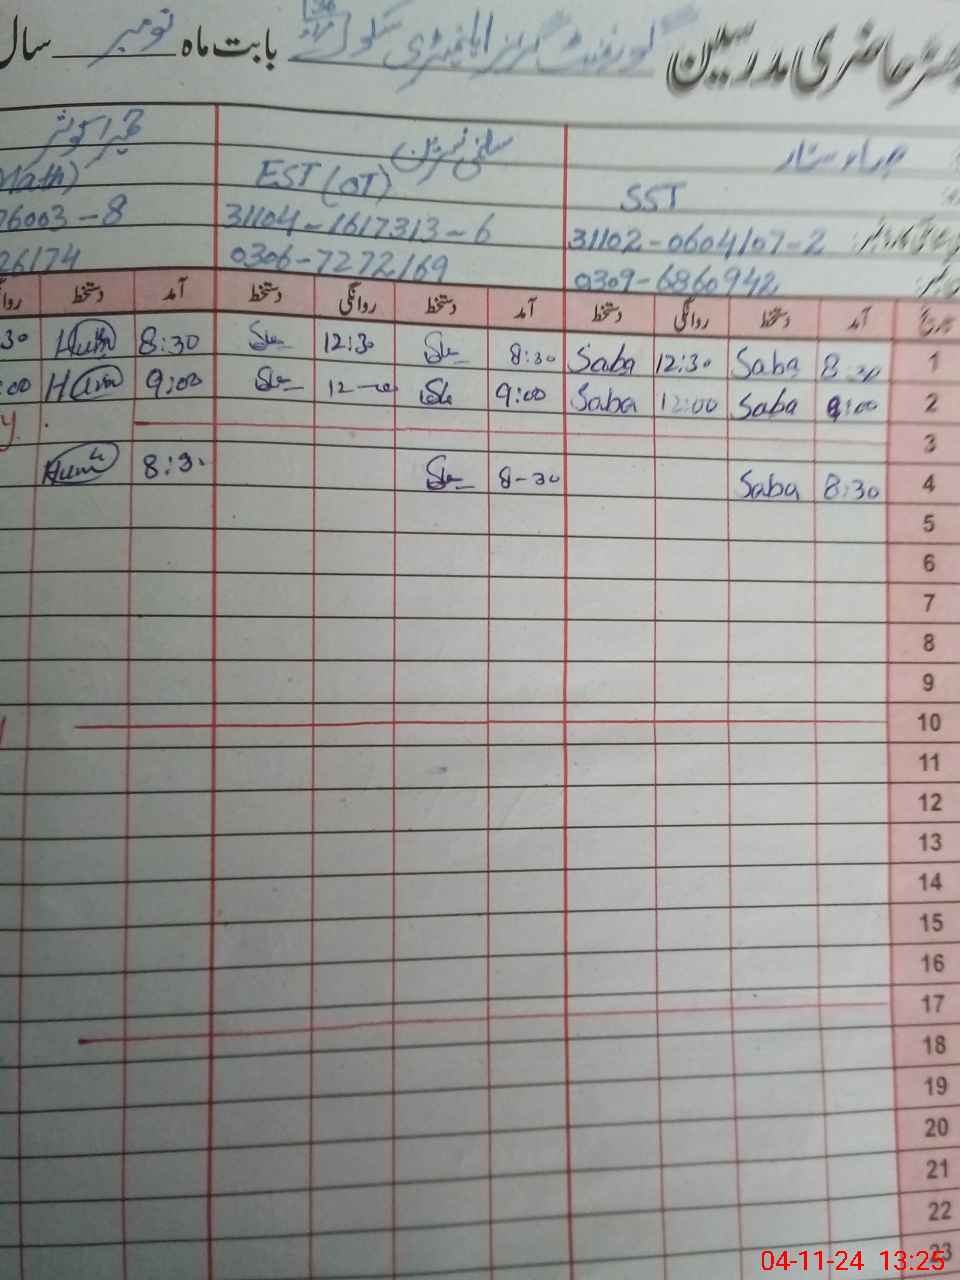 حاضری مدرسین گورنمنٹ گرلز ایلیمنٹری سکول بابت ماہ نومبر سال
صباء ستار
SST
31102-0604107-2
0309-6860942
EST (OT)
31104-1617313-6
0306-7272169
Math)
76003-8
26174
تاریخ آمد دستخط روانگی دستخط آمد دستخط روانگی دستخط آمد دستخط
1 8:30 Saba 12:30 Saba 8:30 12:30 8:30 30
2 9:00 Saba 12:00 Saba 9:00 9:00 :00
3 y
4 8:30 Saba 8-30 8:30
5
6
7
8
9
10
11
12
13
14
15
16
17
18
19
20
21
22
23
04-11-24 13:25